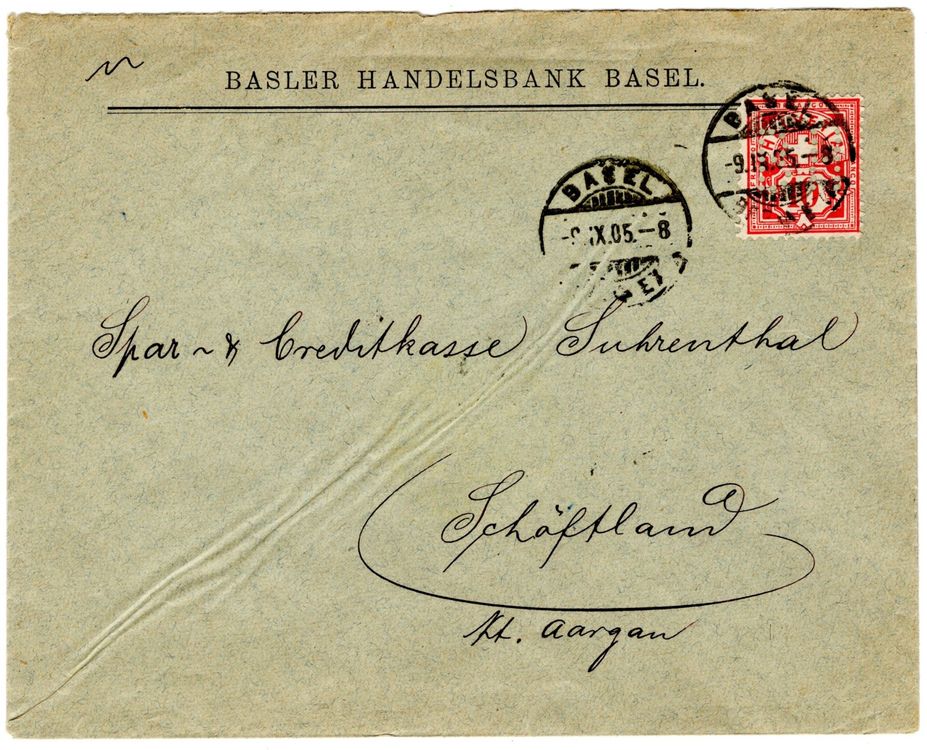 BASLER HANDELSBANK BASEL.
BASEL
-9.IX.05.-8
BASEL
-9.IX.05.-8
10
Spar- & Creditkasse Suhrenthal
Schöftland
Kt. Aargau